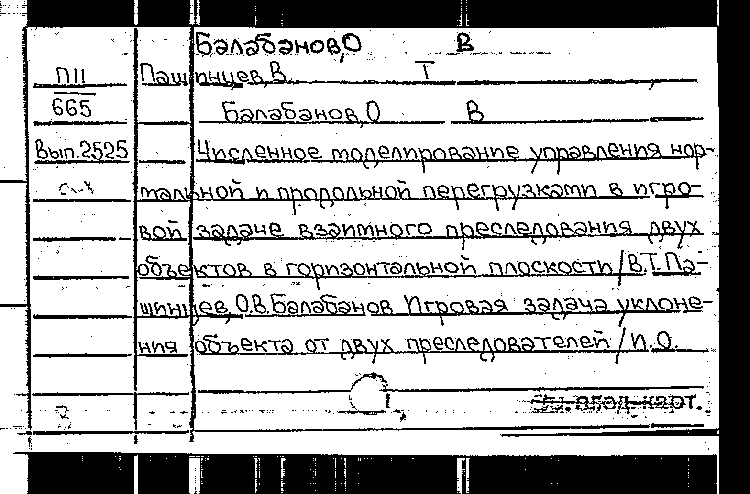 Балабанов, О В
П11 Пашинцев, В. Т
665 Балабанов, О В
Вып. 2525 Численное моделирование управления нор-
мальной и продольной перегрузками в игро-
вой задаче взаимного преследования двух
объектов в горизонтальной плоскости / В.Т. Па-
шинцев, О.В. Балабанов Игровая задача уклоне-
ния объекта от двух преследователей / И.О.